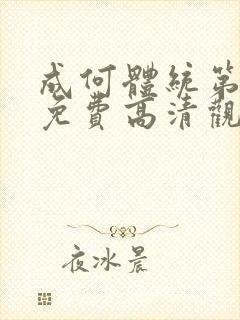 成何體統第
免費高清觀
夜冰晨